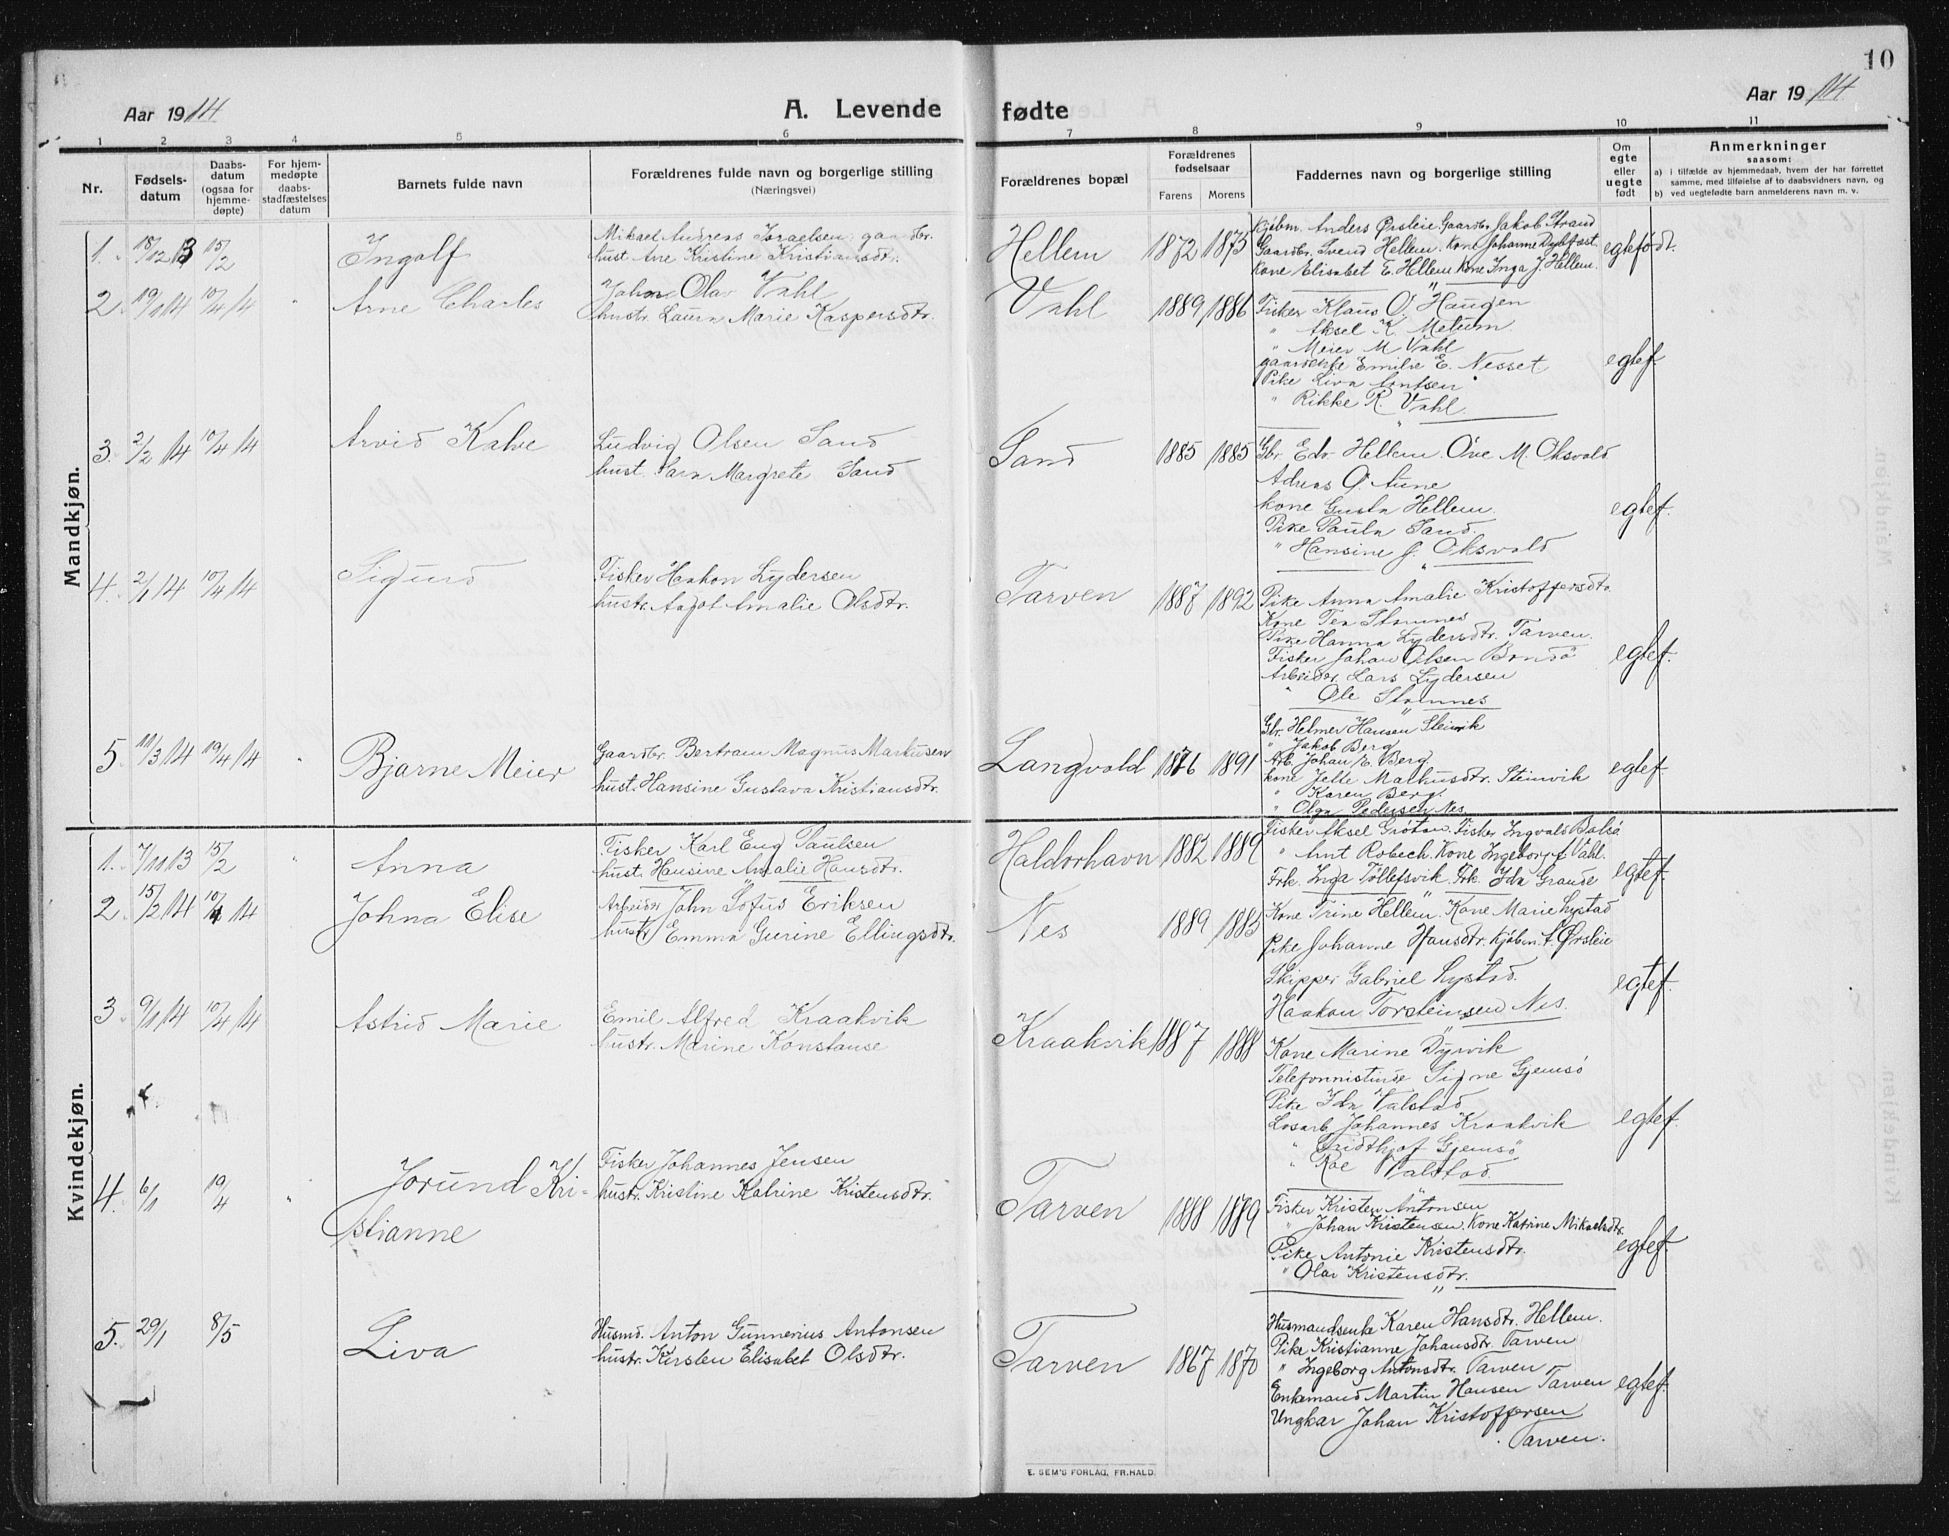 10
Aar 1914
A. Levende
fødte
Aar 1914
1 2 3 4 5 6 7 8 9 10 11
Nr.
Fødsels-
datum
Daabs-
datum
(ogsaa for
hjemme-
døpte)
For hjem-
medøpte
daabs-
stadfæstelses
datum
Barnets fulde navn
Forældrenes fulde navn og borgerlige stilling
(Næringsvei)
Forældrenes bopæl
Forældrenes
fødselsaar
Farens Morens
Faddernes navn og borgerlige stilling
Om
egte
eller
uegte
født
Anmerkninger
saasom:
a) i tilfælde av hjemmedaab, hvem der har forrettet
samme, med tilføielse af to daabsvidners navn, og
b) ved uegtefødte barn anmelderens navn m. v.
Mandkjøn.
1. 18/12 13 15/2 Ingolf
Mikael Andreas Israelsen gaardbr.
hust. Ane Kristine Kristiansdtr.
Hellem 1872 1875
Kjøbm. Anders Ørsleie. Gaardbr. Jakob Strand
Gaardbr. Svend Hellem. Kone Johanne Dybfest
Kone Elisabet E. Hellem Kone Inga J. Hellem.
egtefødt.
2. 19/1 14 10/4 14 " Arne Charles
Johan Olav Vahl
hustr. Laura Marie Kaspersdtr.
Vahl 1889 1886
Fisker Klaus O. Haugen
" Aksel K. Melum
" Meier M. Vahl
Emilie E. Nesset
Pike Liva Arntsen
" Rikke R. Vahl.
egtef.
3. 2/2 14 10/4 14 Arvid Kalve
Ludvig Olsen Sand
hust. Sara Margrete Sand
Sand 1885 1885
Gbr. Edv. Hellem. Ove M. Oksvold
Adreas O. Aune
Kone Gusta Hellem.
Pike Paula Sand
" Hansine J. Oksvold
egtef.
4. 2/1 14 10/4 14 Sigurd
Fisker Haakon Lydersen
hustr. Aagot Amalie Olsdtr.
Tarven 1887 1892
Pike Anna Amalie Kristoffersdtr.
Kone Tea Stamnes
Pike Hanna Lydersdtr. Tarven.
Fisker Johan Olsen
Arbeider Lars Lydersen
" Ole Stamnes
egtef.
5. 11/3 14 19/4 14 " Bjarne Meier
Gaardbr. Bertram Magnus Markusen
hust. Hansine Gustava Kristiansdtr.
Langvold 1876 1891
Gbr. Helmer Hansen Steinvik
" Jakob Berg
Arb. Johan E. Berg
kone Jelle Markusdtr. Steinvik
" Karen Berg.
" Olga Pedersen Nes.
egtef.
Kvindekjøn.
1. 7/11 13 15/2 " Anna
Fisker Karl Eug. Paulsen
hust. Hansine Amalie Hansdtr.
Haldorhavn 1882 1889
Fisker Aksel Grøtan. Fisker Ingvald Balsø
" Arnt Robech. Kone Ingeborg Vahl.
Frk. Inga Tøllefsvik. Frk. Ida Grande
egtef.
2. 15/2 14 10/4 14 Johna Elise
Arbeider John Sofus Eriksen
hustr. Emma Gurine Ellingsdtr.
Nes 1889 1885
Kone Trine Hellem. Kone Marie Lystad
Pike Johanne Hansdtr. Kjøbm. A. Ørsleie
Skipper Gabriel Lystad.
Haakon Torsteinsen Nes.
egtef.
3. 9/1 14 10/4 14 Astrid Marie
Emil Alfred Kraakvik
hustr. Marine Konstanse
Kraakvik 1887 1888
Kone Marine Dyrvik
Telefonnistinde Signe Gjemsø
Pike Ida Valstad
Losarb. Johannes Kraakvik
" Fridthjof Gjemsø
" Roe Valstad.
egtef.
4. 6/1 19/4 " Jorund Kri-
stianne
Fisker Johannes Jensen
hustr. Kristine Katrine Kristensdtr.
Tarven 1888 1889
Fisker Kristen Antonsen
" Johan Kristensen. Kone Katrine Mikaelsdtr.
Pike Antonie Kristensdtr.
" Olav Kristensdtr.
egtef.
5. 29/1 8/5 Liva
Husmd. Anton Gunnerius Antonsen
hustr. Kirsten Elisabet Olsdtr.
Tarven 1867 1870
Husmandsenke Karen Hansdtr. Hellem.
Pike Kristianne Johansdtr. Tarven
" Ingeborg Antonsdtr. Tarven
Enkemand Martin Hansen Tarven
Ungkar Johan Kristoffersen
Tarven.
egtef.
E. SEM'S FORLAG, FR.HALD.